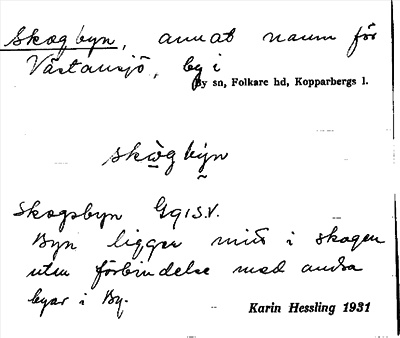 Skogbyn, annat namn för
Västansjö, by i
By sn, Folkare hd, Kopparbergs l.
skògby̰n
Skogsbyn Gq I S.V.
Byn ligger mitt i skogen
utan förbindelse med andra
byar i By.
Karin Hessling 1931